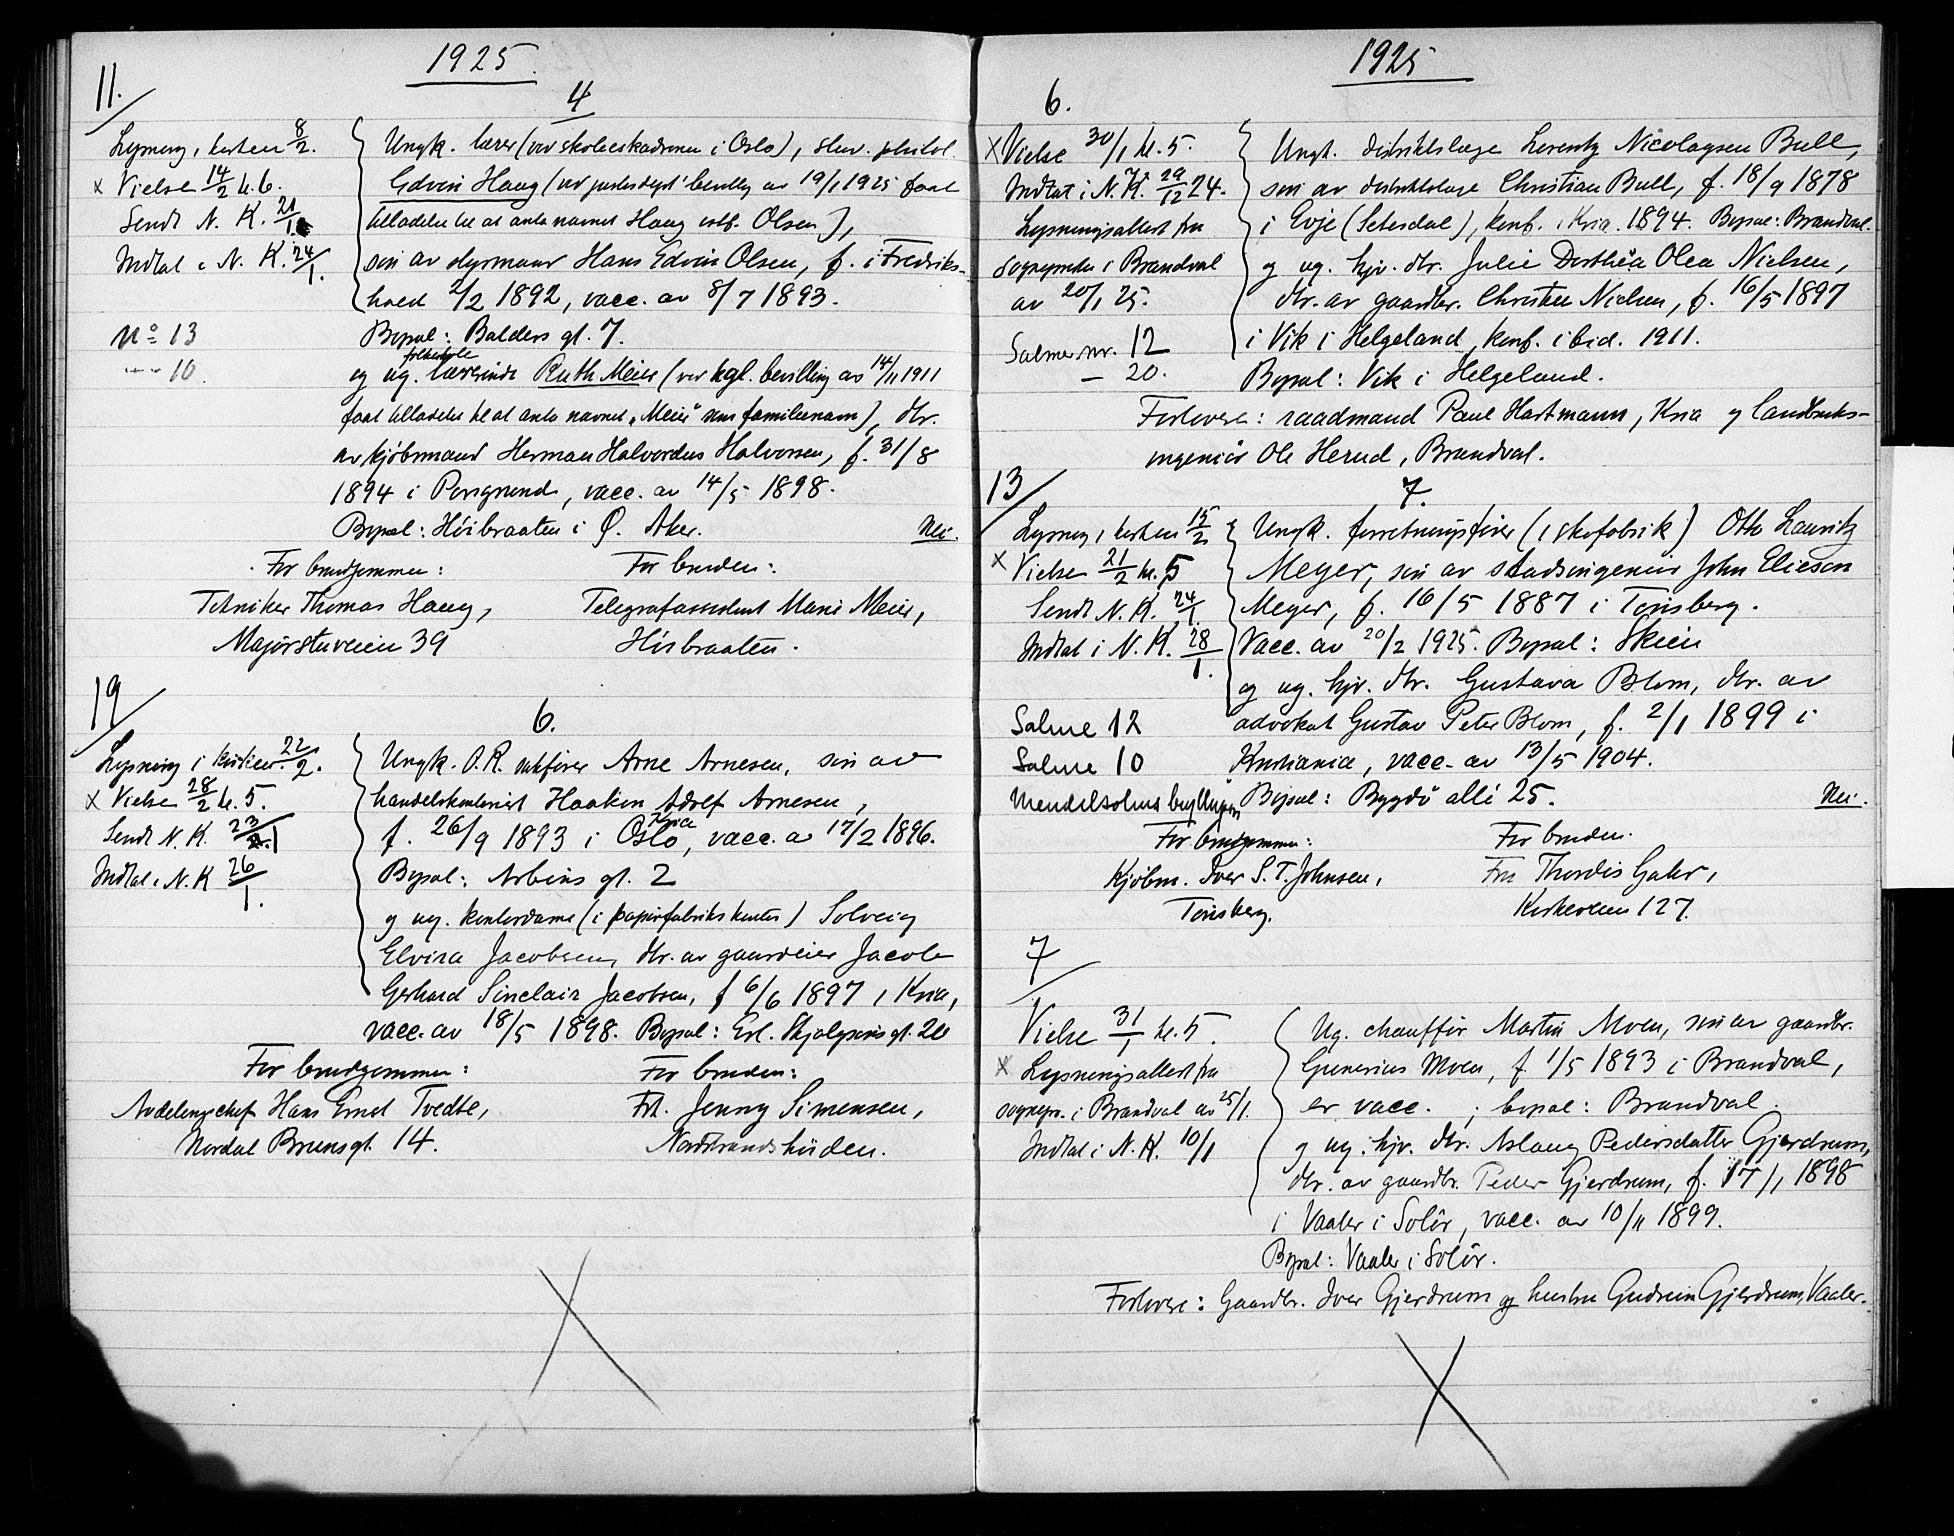 1925.
11.
4
Lysning i kirken 8/2.
x Vielse 14/2 kl. 6.
Sendt N. K. 21/1
Indtat i N. K. 24/1.
No 13
" 10.
Ungk. lærer (ved skoleeskadronen i Oslo), stud. philol.
Edvin Haug (ved justisdept's bevillg av 19/1 1925 faat
tilladelse til at anta navnet Haug istf. Olsen),
søn av styrmand Hans Edvin Olsen, f. i Fredriks-
hald 2/2 1892, vacc. av 8/7 1893.
Bopæl: Balders gt. 7.
folkeskole
og ug. lærerinde Ruth Meier (ved kgl. bevilling av 14/11 1911
faat tilladelse til at anta navnet "Meier" som familienavn), dtr.
av kjøbmand Herman Halvordus Halvorsen, f. 31/8
1894 i Porsgrund, vacc. av 14/5 1898.
Bopæl: Høibraaten i Ø. Aker. Nei.
For brudgommen: For bruden:
Tekniker Thomas Haug, Telegrafassistent Marie Meier,
Majorstuveien 39 Høibraaten.
19
6.
Lysning i kirken 22/2.
x Vielse 28/2 kl. 5.
Sendt N. K. 23/1
Indtat i N. K 26/1.
Ungk. O.R. sakfører Arne Arnesen, søn av
handelskontorist Haakon Adolf Arnesen,
Kria
f. 26/9 1893 i Oslo, vacc. av 17/2 1896.
Bopæl: Arbins gt. 2
og ug. kontordame (i papirfabrikskontor) Solveig
Elvira Jacobsen, dtr. av gaardeier Jacob
Gerhard Sinclair Jacobsen, f 6/6 1897 i Kria,
vacc. av 18/5 1898. Bopæl: Erl. Skjalgsøns gt. 20
For brudgommen: For bruden:
Avdelingschef Hans Ernst Tvedte, Frk. Jenny Simensen,
Nordal Brunsgt. 14. Nordstrandshøiden.
1925
6.
x Vielse 30/1 kl. 5.
Indtat i N. K. 29/12 24.
Lysningsattest fra
sogneprsten i Brandval
av 20/1 25.
Salme nr. 12
— 20.
Ungk. distriktslæge Lorentz Nicolaysen Bull,
søn av distriktslæge Christian Bull, f. 18/9 1878
i Evje (Setesdal), konf. i Kria. 1894. Bopæl: Brandval.
og ug. hjv. dtr. Julie Dorthea Olea Nielsen,
dtr. av gaardbr. Christen Nielsen, f. 16/5 1897
i Vik i Helgeland, konf. ibid. 1911.
Bopæl: Vik i Helgeland.
Forlovere: raadmand Paul Hartmann, Kria og landbruks-
ingeniør Ole Herud, Brandval.
13
7.
Lysning i kirken 15/2
x Vielse 21/2 kl. 5
Sendt N. K. 24/1.
Indtat i N. K. 28/1.
Salme 12
Salme 10
Mendelsohns bryllupsm
Ungk. forretningsfører (i skofabrik) Otto Lauritz
Meyer, søn av stadsingeniør John Elieson
Meyer, f. 16/5 1887 i Tønsberg.
Vacc. av 20/2 1925. Bopæl: Skien
og ug. hjv. dtr. Gustava Blom, dtr. av
advokat Gustav Peter Blom, f. 2/1 1899 i
Kristiania, vacc. av 13/5 1904.
Bopæl: Bygdø allé 25. Nei.
For brudgommen: For bruden.
Kjøbm. Iver S. T. Johnsen, Fru Thordis Gahr,
Tønsberg. Kirkeveien 127.
7
Vielse 31/1 kl. 5.
x Lysningsattest fra
sognepr. i Brandval av 25/1.
Indtat i N. K. 10/1
Ug. chauffør Martin Moen, søn av gaardbr.
Gunerius Moen, f. 1/5 1893 i Brandval,
er vacc. ; bopæl: Brandval.
og ug. hjv. dtr. Aslaug Pedersdatter Gjerdrum,
dtr. av gaardbr. Peder Gjerdrum, f. 17/1 1898
i Vaaler i Solør, vacc. av 10/11 1899.
Bopæl: Vaaler i Solør.
Forlovere: Gaardbr. Iver Gjerdrum og hustru Gudrun Gjerdrum, Vaaler.